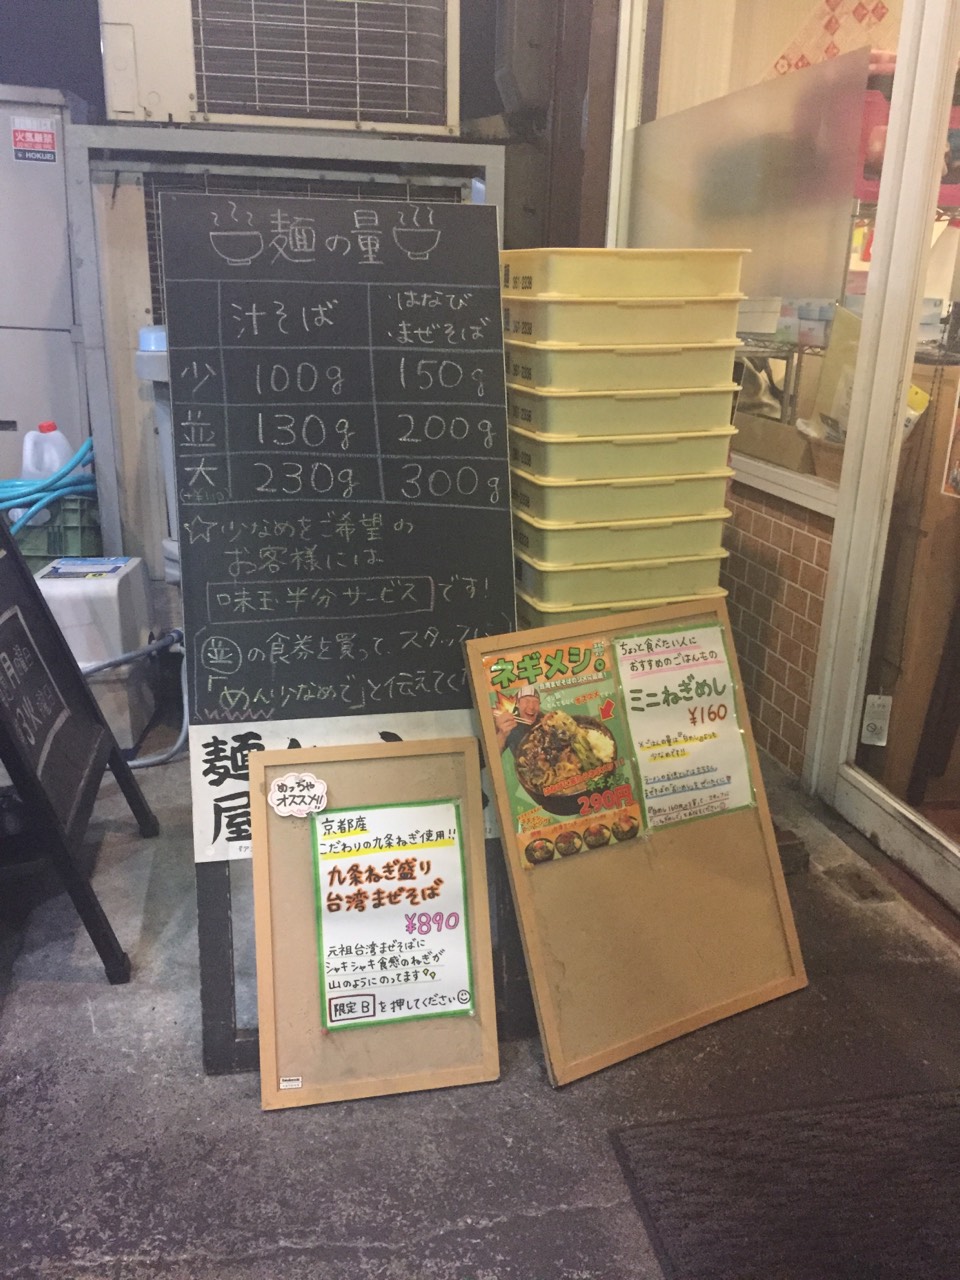 火気厳禁
HOKUEI
麺の量
汁そば
はなび
まぜそば
少 100g 150g
並 130g 200g
大 230g 300g
☆少なめをご希望の
お客様には
味玉半分サービスです!
並の食券を買ってスタッフに
「めん少なめで」と伝えてく
麺
屋
月
めっちゃ
オススメ!!
京都産
こだわりの九条ねぎ使用!!
九条ねぎ盛り
台湾まぜそば
¥890
元祖台湾まぜそばに
シャキシャキ食感のねぎが
山のようにのってます
限定Bを押してください
ネギメシ。
290円
ちょっと食べたい人に
おすすめのごはんもの
ミニねぎめし
¥160